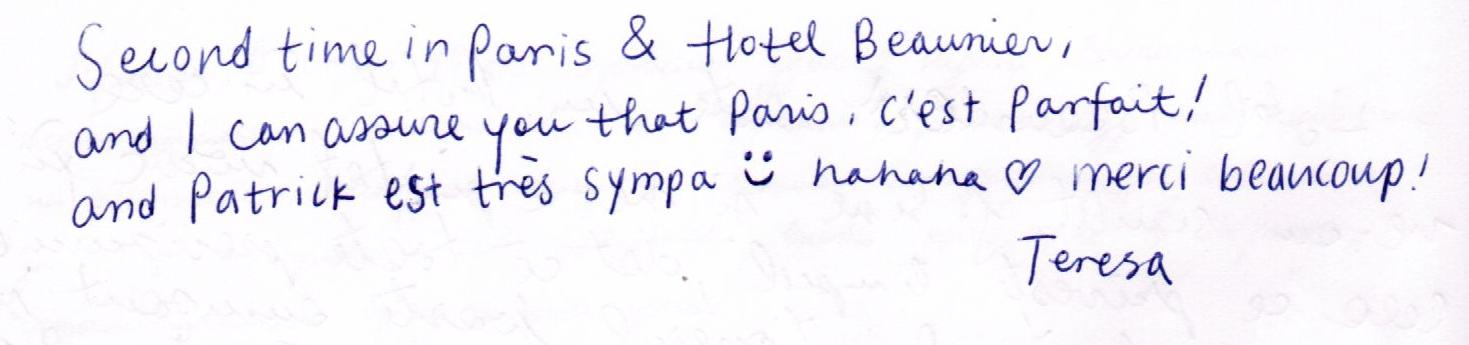 Second time in Paris & Hotel Beaunier,
and I can assure you that Paris, c'est Parfait!
and Patrick est très sympa ü hahaha ♡ merci beaucoup!
Teresa